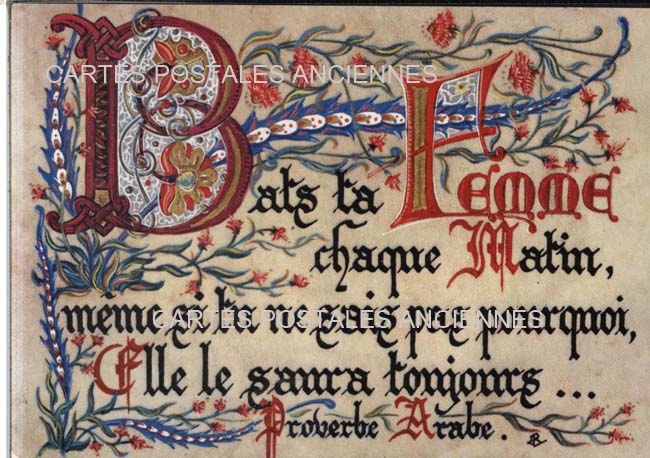 CARTES POSTALES ANCIENNES
Bats ta Femme
chaque Matin,
même si tu ne sais pas pourquoi,
CARTES POSTALES ANCIENNES
Elle le saura toujours ...
Proverbe Arabe.